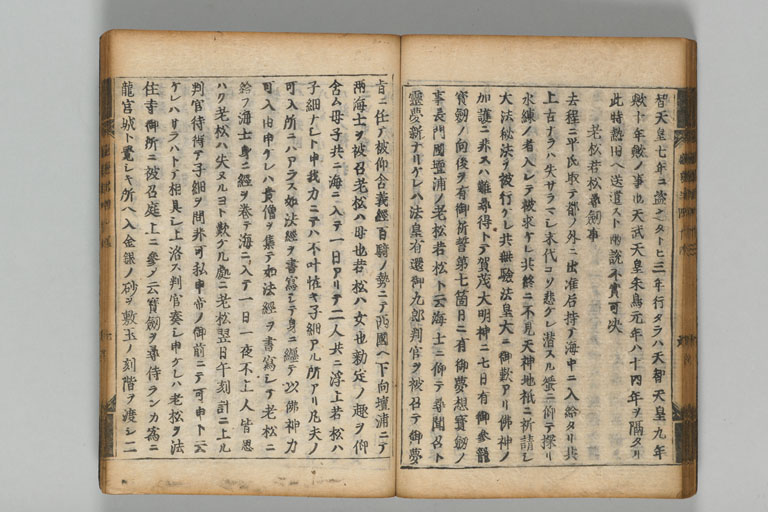 智天皇七年ニ盗之タトヒ三年行タラハ天智天皇九年
歟十年歟ノ事也天武天皇朱鳥元年ハ十四年ヲ隔タリ
此時熱田ヘ送還スト両説不實可决
老松若松尋劔事
去程ニ平氏取テ都ノ外ニ出准后持テ海中ニ入給タリ共
上古ナラハ失サラマシ末代コソ悲ケレ潜スル蜑ニ仰テ探リ
水練ノ者入レテ被求ケレ共終ニ不見天神地祇ニ祈請シ
大法秘法ヲ被行ケレ共無驗法皇大ニ御歎アリ佛神ノ
加護ニ非スハ難尋得トテ賀茂大明神ニ七日有御参籠
寳劔ノ向後ヲ有御祈誓第七箇日ニ有御夢想寳劔ノ
事長門國壇浦ノ老松若松ト云海士ニ仰テ尋聞召ト
靈夢新ナリケレハ法皇有還御九郎判官ヲ被召テ御夢
旨ニ任テ被仰含義經百騎ノ勢ニテ西國ヘ下向壇浦ニテ
兩海士ヲ被召老松ハ母也若松ハ女也勅定ノ趣ヲ仰
含ム母子共ニ海ニ入テ一日アリテ二人共ニ浮上若松ハ
子細ナシト申我力ニテハ不叶怪キ子細アル所アリ凡夫ノ
可入所ニハアラス如法經ヲ書寫シテ身ニ纒テ以佛神力
可入由申ケレハ貴僧ヲ集テ如法經ヲ書寫シテ老松ニ
給フ海士身ニ經ヲ巻テ海ニ入テ一日一夜不上人皆思
ハク老松ハ失タルヨト歎ケル處ニ老松翌日午刻計ニ上ル
判官待得テ子細ヲ問非可私申帝ノ御前ニテ可申ト云
ケレハサラハトテ相具シ上洛ス判官奏シ申ケレハ老松ヲ法
住寺御所ニ被召庭上ニ参テ云寳劔ヲ尋侍ランカ為ニ
龍宮城ト覺シキ所ヘ入金銀ノ砂ヲ敷玉ノ刻階ヲ渡シ二